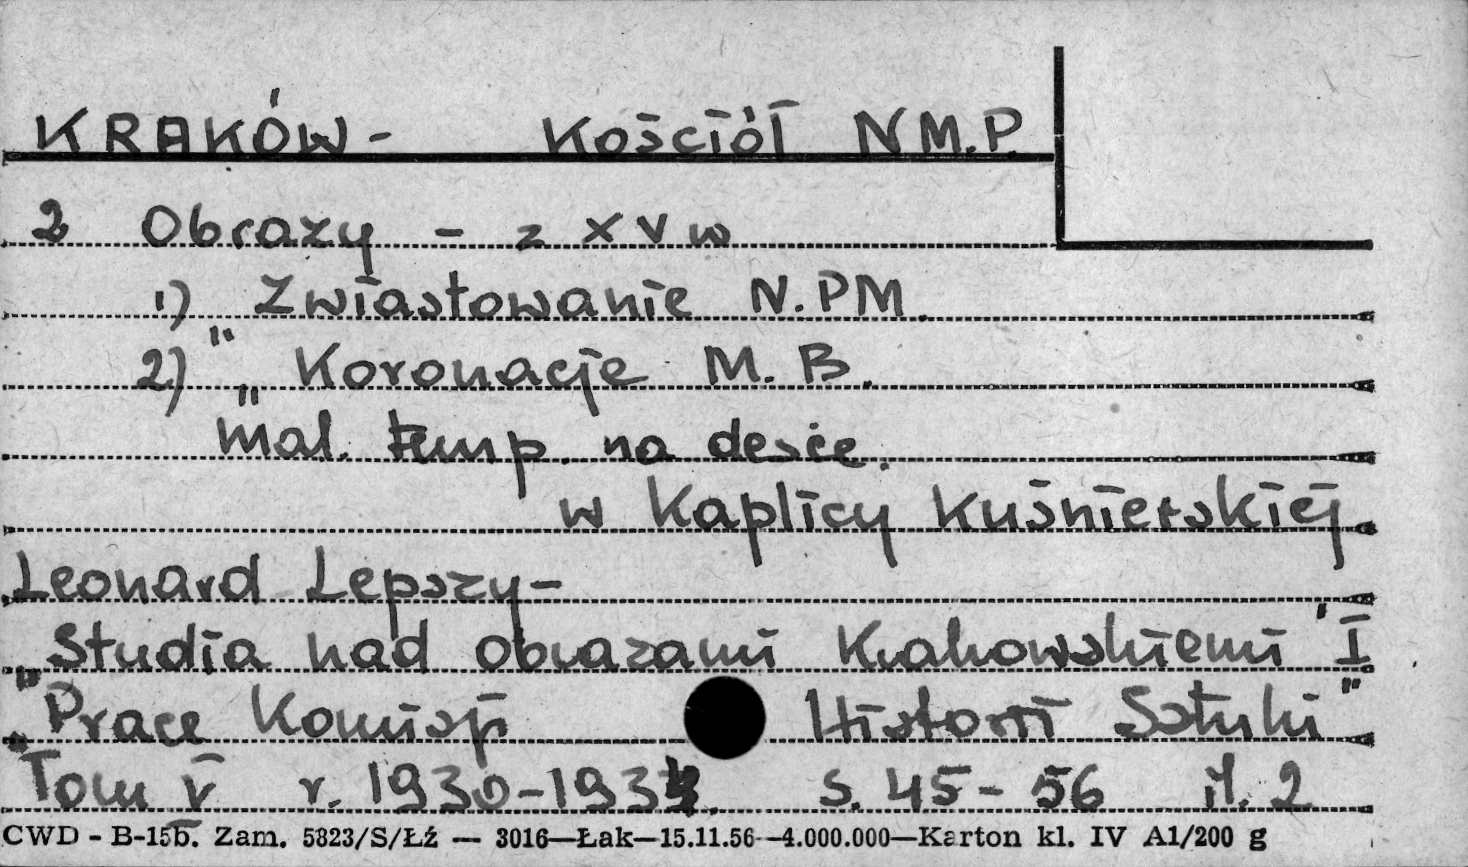 KRAKÓW - Kościół NM.P.
2 Obrazy - z XV w
1) Zwiastowanie N.PM.
2) " Koronacje M.B.
" mal. temp. na desce.
w Kaplicy Kuśnierskiej
Leonard Lepszy -
"Studia nad obrazami Krakowskiemi" I
"Prace Komisji Historii Sztuki"
Tom V r. 1930-1934. s. 45-56 il. 2
CWD - B-15b. Zam. 5823/S/Łź — 3016—Łak—15.11.56—4.000.000—Karton kl. IV A1/200 g